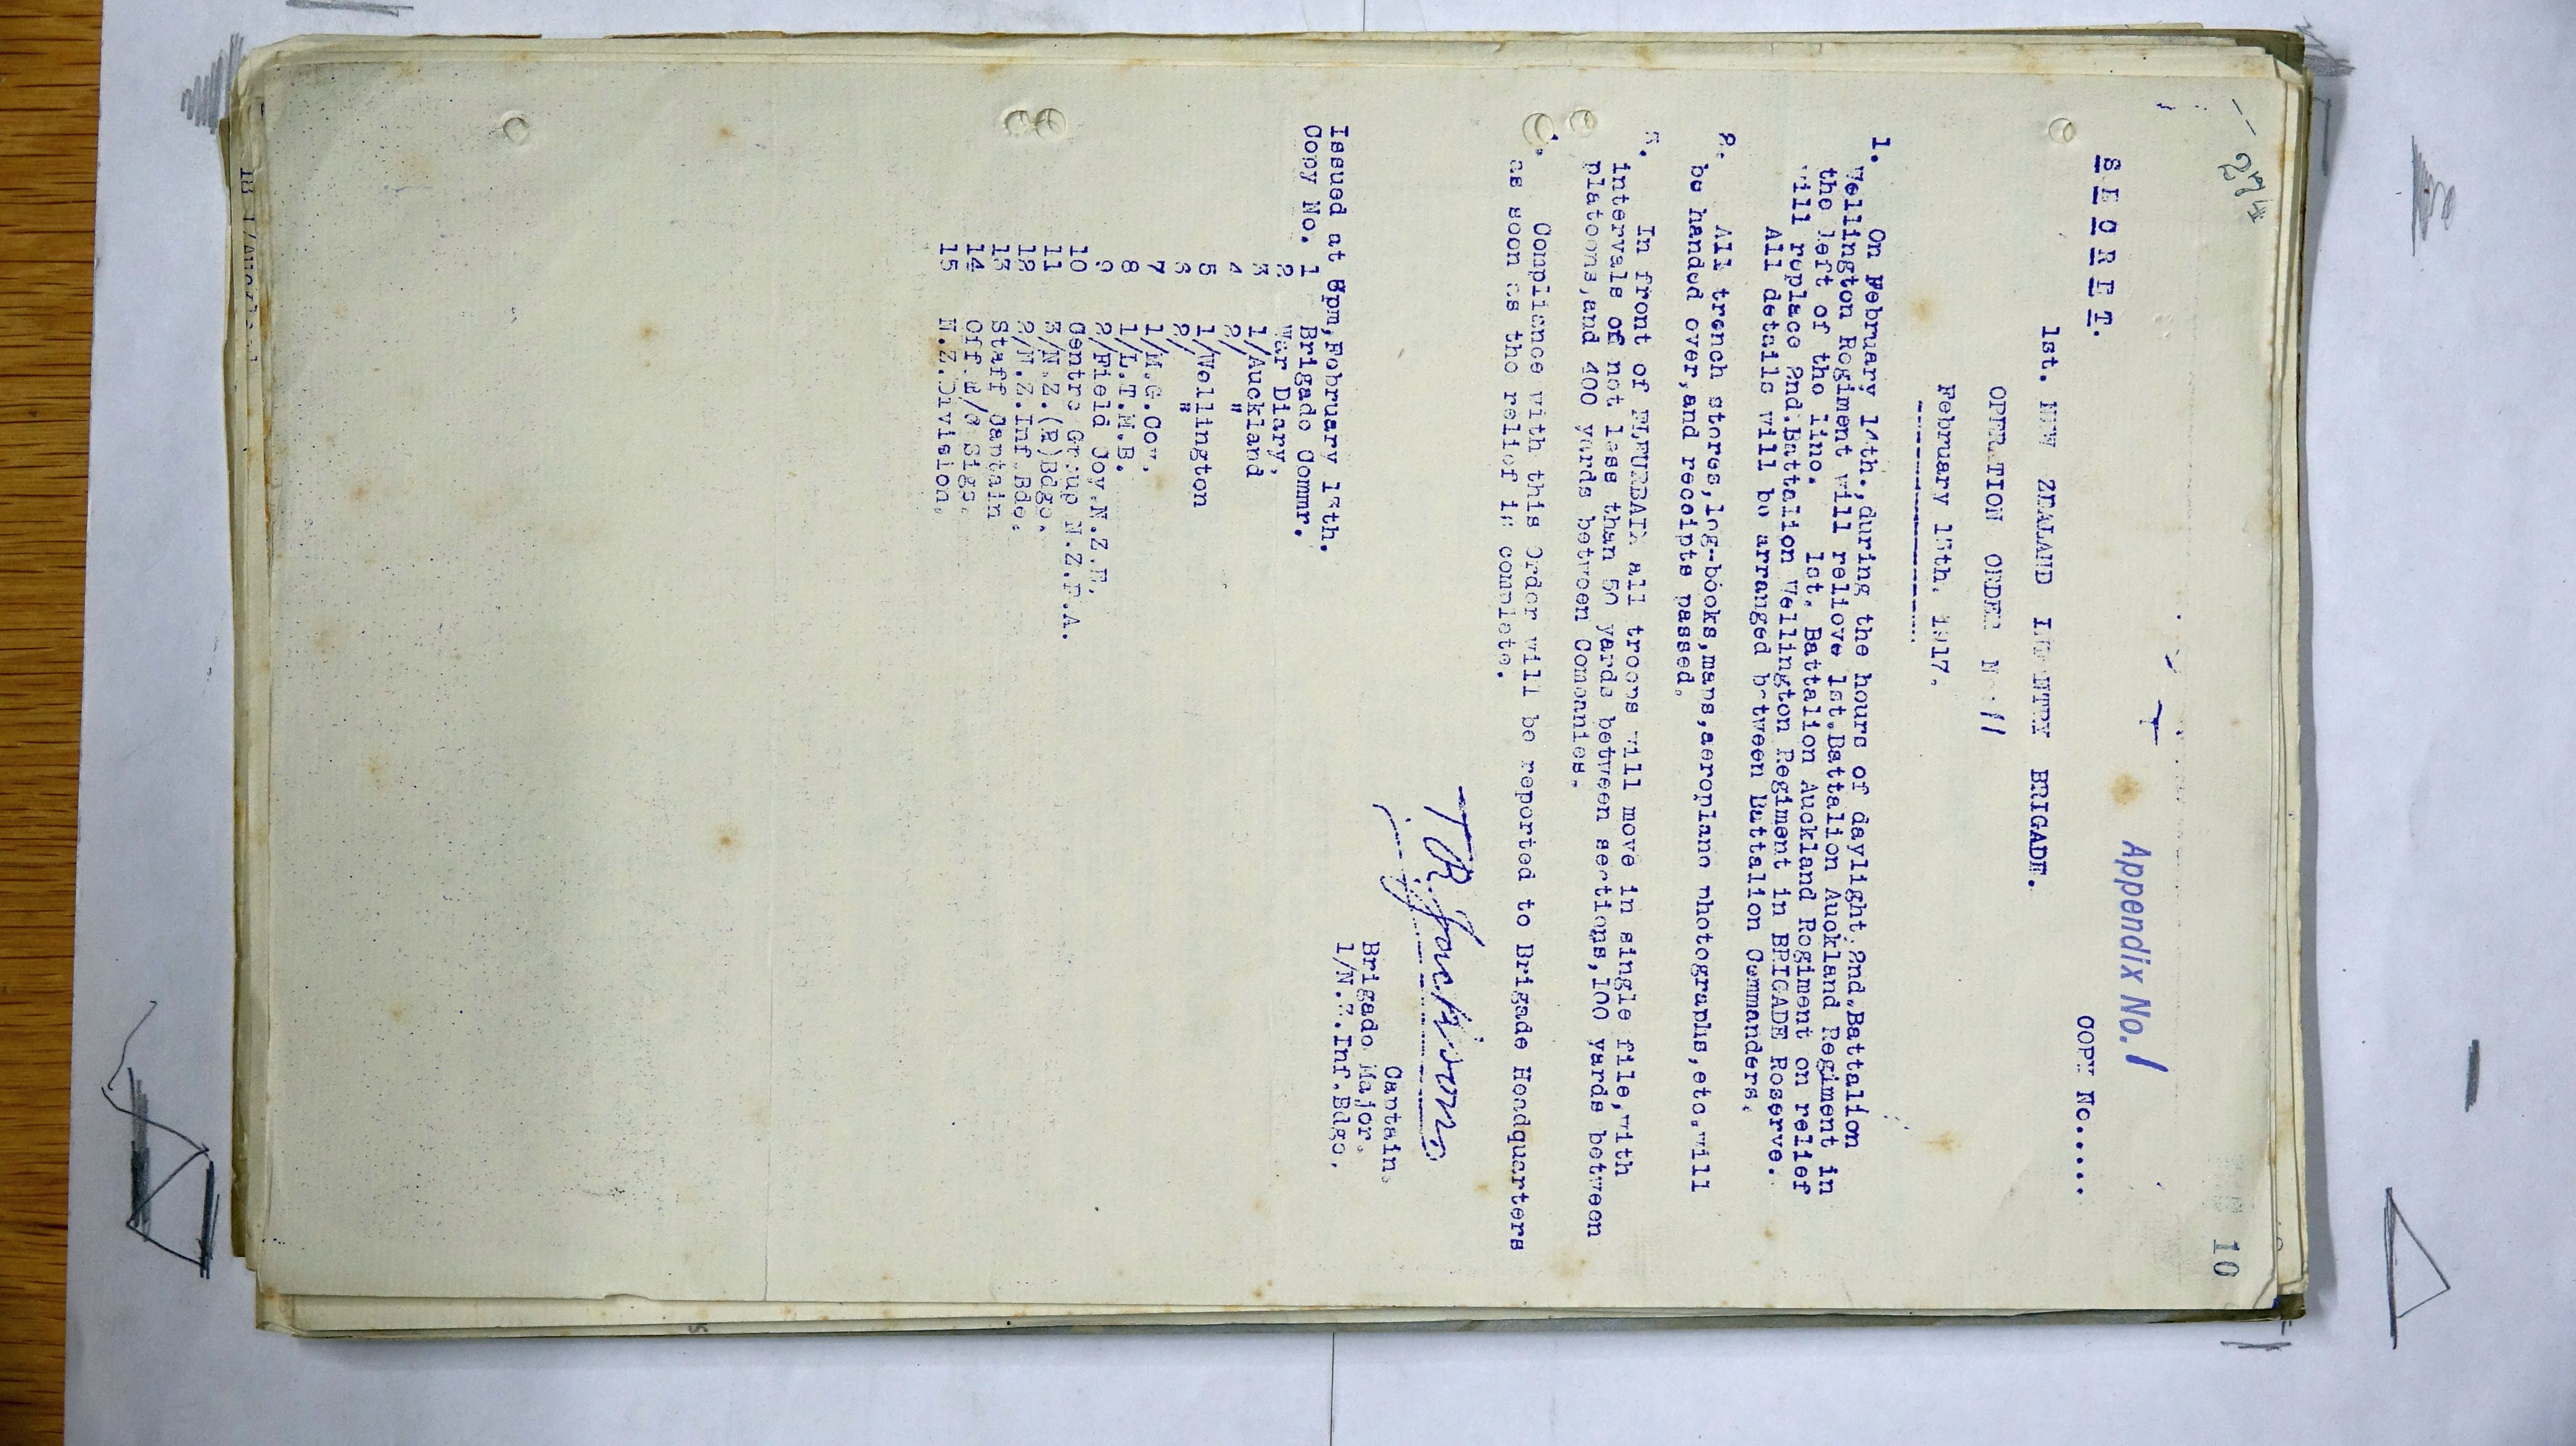 10
Appendix No. 1
S E C R E T.
COPY No.....
1st. NEW ZEALAND INFANTRY BRIGADE.
OPERATION ORDER No. 11
February 13th. 1917.
1. On February 14th.,during the hours of daylight,2nd.Battalion
Wellington Regiment will relieve 1st.Battalion Auckland Regiment in
the left of the line. 1st. Battalion Auckland Regiment on relief
will replace 2nd.Battalion Wellington Regiment in BRIGADE Reserve.
All details will be arranged between Battalion Commanders.
2. All trench stores,log-books,maps,aeroplane photographs,etc.will
be handed over,and receipts passed.
3. In front of FLEURBAIX all troops will move in single file,with
intervals of not less than 50 yards between sections,100 yards between
platoons,and 400 yards between Companies.
Compliance with this Order will be reported to Brigade Headquarters
as soon as the relief is complete.
Captain.
Brigade Major.
1/N.Z.Inf.Bdge.
Issued at 8pm,February 13th.
Copy No. 1 Brigade Commr.
2 War Diary.
3 1/Auckland
4 2/ "
5 1/Wellington
6 2/ "
7 1/M.G.Coy.
8 1/L.T.M.B.
9 2/Field Coy.N.Z.E.
10 Centre Group N.Z.F.A.
11 3/N.Z.(R)Bdge.
12 2/N.Z.Inf.Bde.
13 Staff Captain
14 Off i/c Sigs.
15 N.Z.Division.